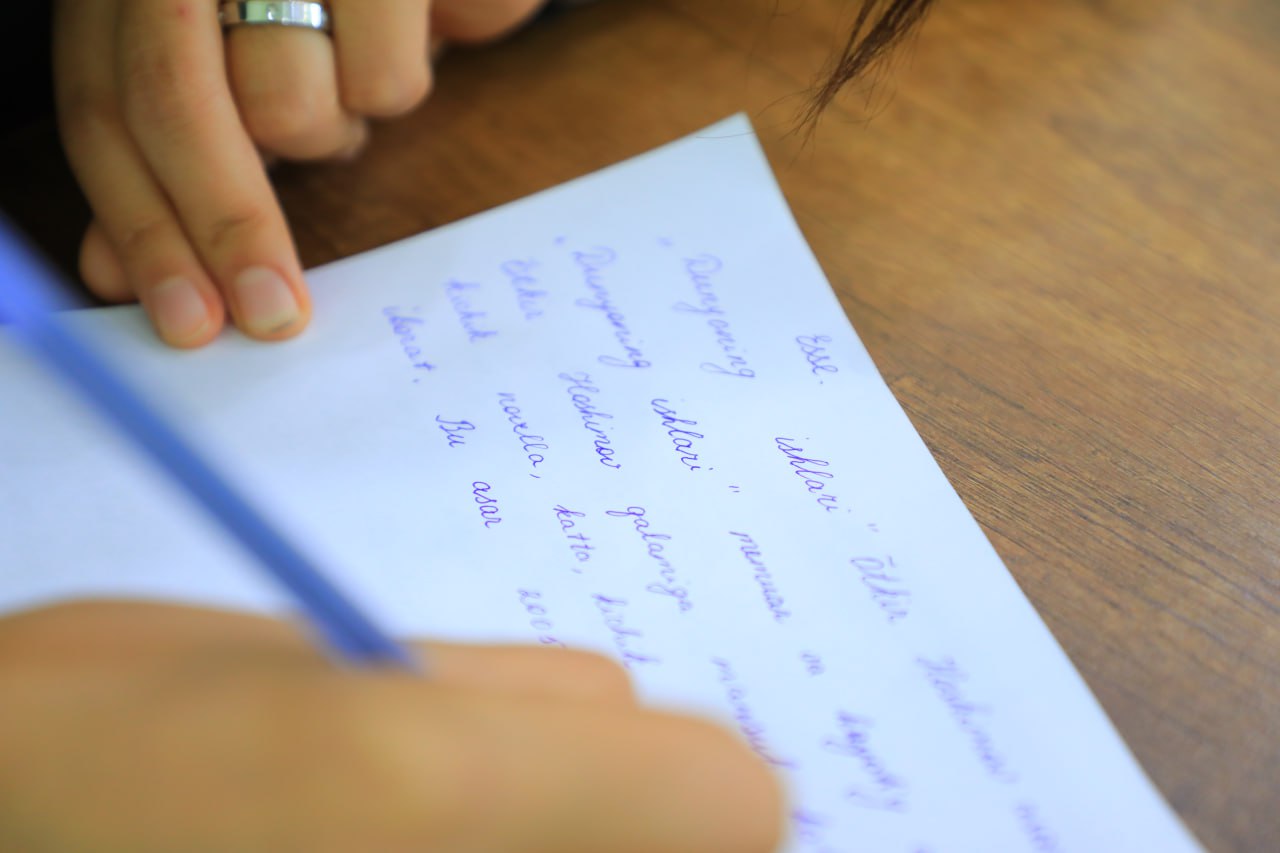 Esse.
"Dunyoning ishlari" Õtkir Hoshimov
"Dunyoning ishlari" memuar va
Õtkir Hoshimov qalamiga mansub
kichik novella, katta, kichik
iborat. Bu asar 2005